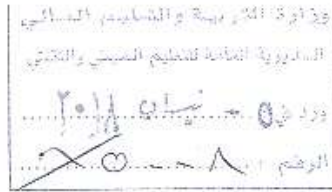 وزارة التربية والتعليم العالي
المديرية العامة للتعليم المهني والتقني
ورد في ٥ - نيسان ٢٠١٨
الرقم :